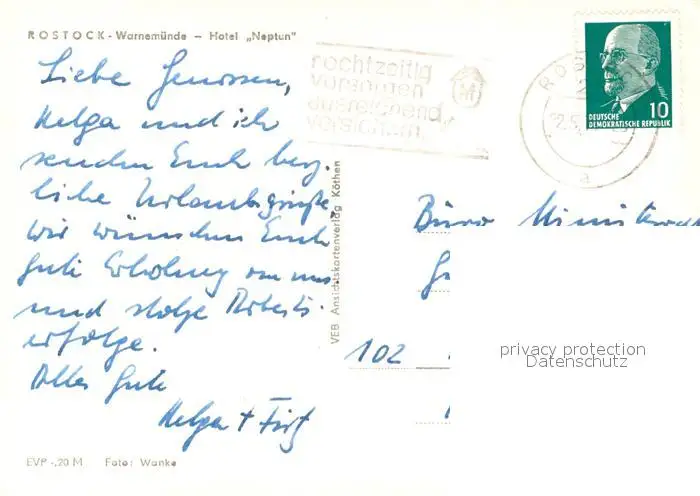 ROSTOCK - Warnemünde – Hotel „Neptun"
Liebe Genossen,
Helga und ich
senden Euch herz-
liche Urlaubsgrüße.
Wir wünschen Euch
gute Erholung von uns
und stolze Arbeits-
erfolge.
Alles Gute
Helga +
EVP -,20 M Foto: Wanke
VEB Ansichtskartenverlag Köthen
rechtzeitig
vorsorgen
ausreichend
versichern
ROS
a
10
DEUTSCHE
DEMOKRATISCHE REPUBLIK
Büro
102
privacy protection
Datenschutz